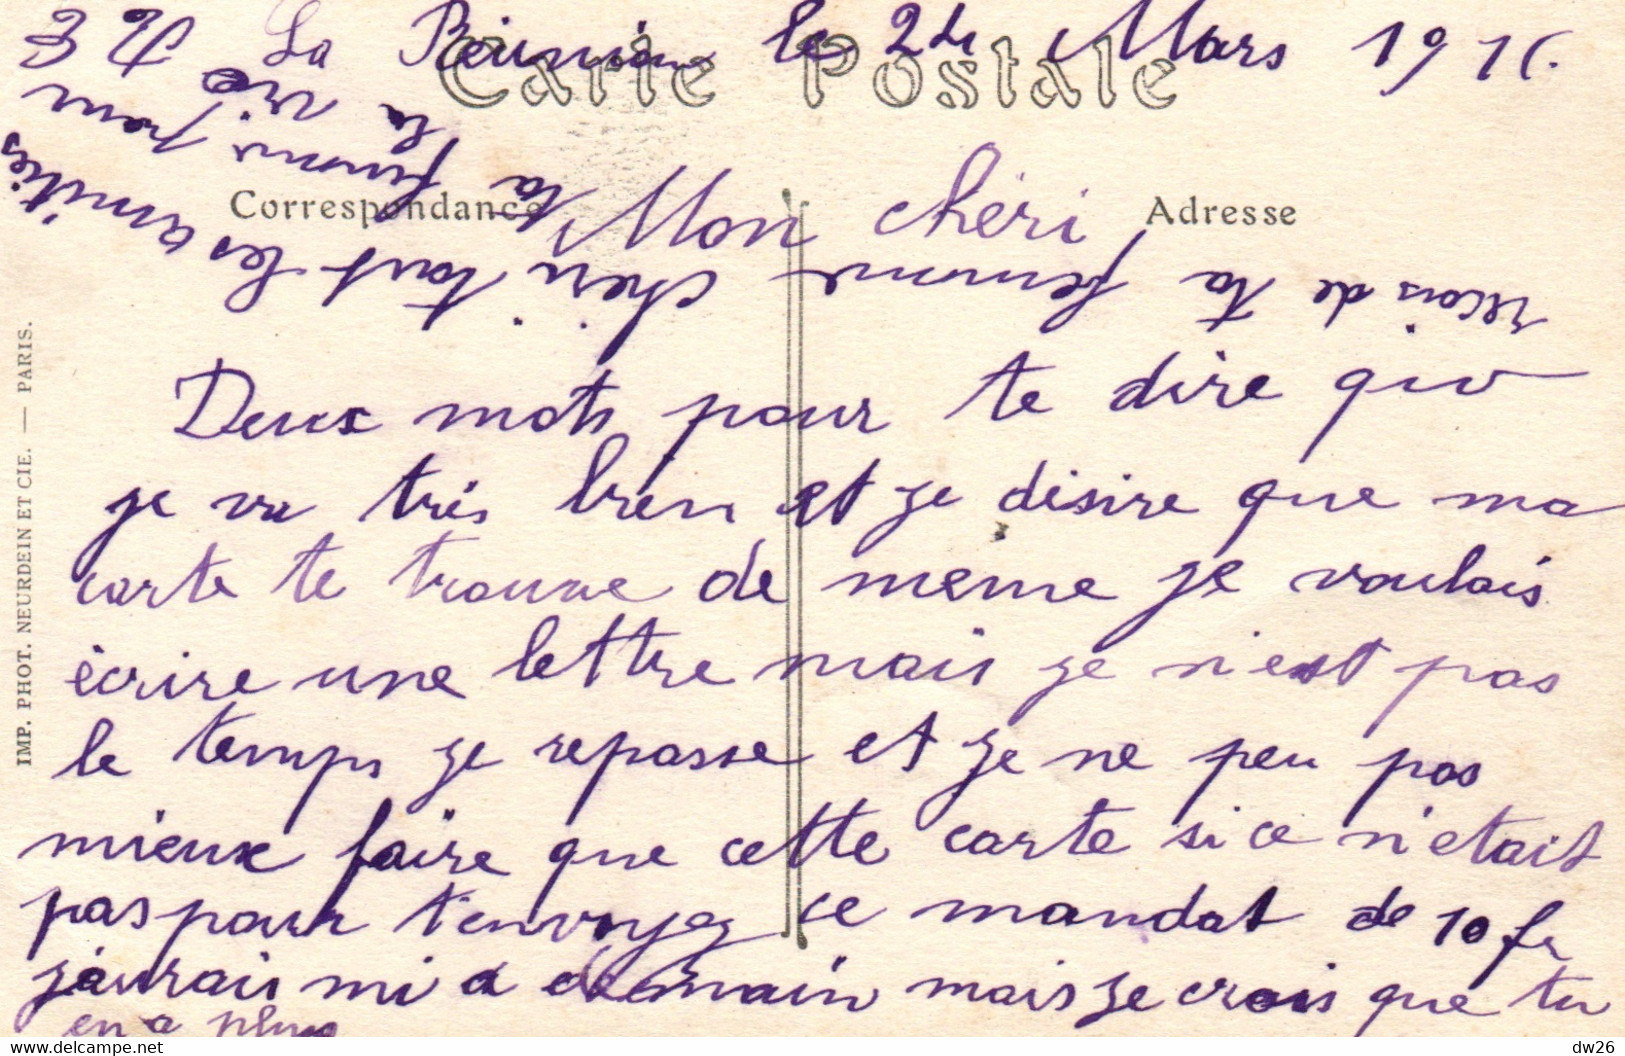 La Réunion le 24 Mars 191
Carte Postale
Correspondance
Adresse
Mon chéri
Deux mots pour te dire que
je va très bien et je désire que ma
carte te trouve de meme je voulais
écrire une lettre mais je n'est pas
le temps je repasse et je ne peu pas
mieux faire que cette carte si ce n'etait
pas pour t'envoyez ce mandat de 10 fr
j'aurais mi a demain mais je crois que tu
en a plus
recois de ta femme cheri tout les amitiés
ta femme pour
la vie
IMP. PHOT. NEURDEIN ET CIE. — PARIS.
www.delcampe.net
dw26